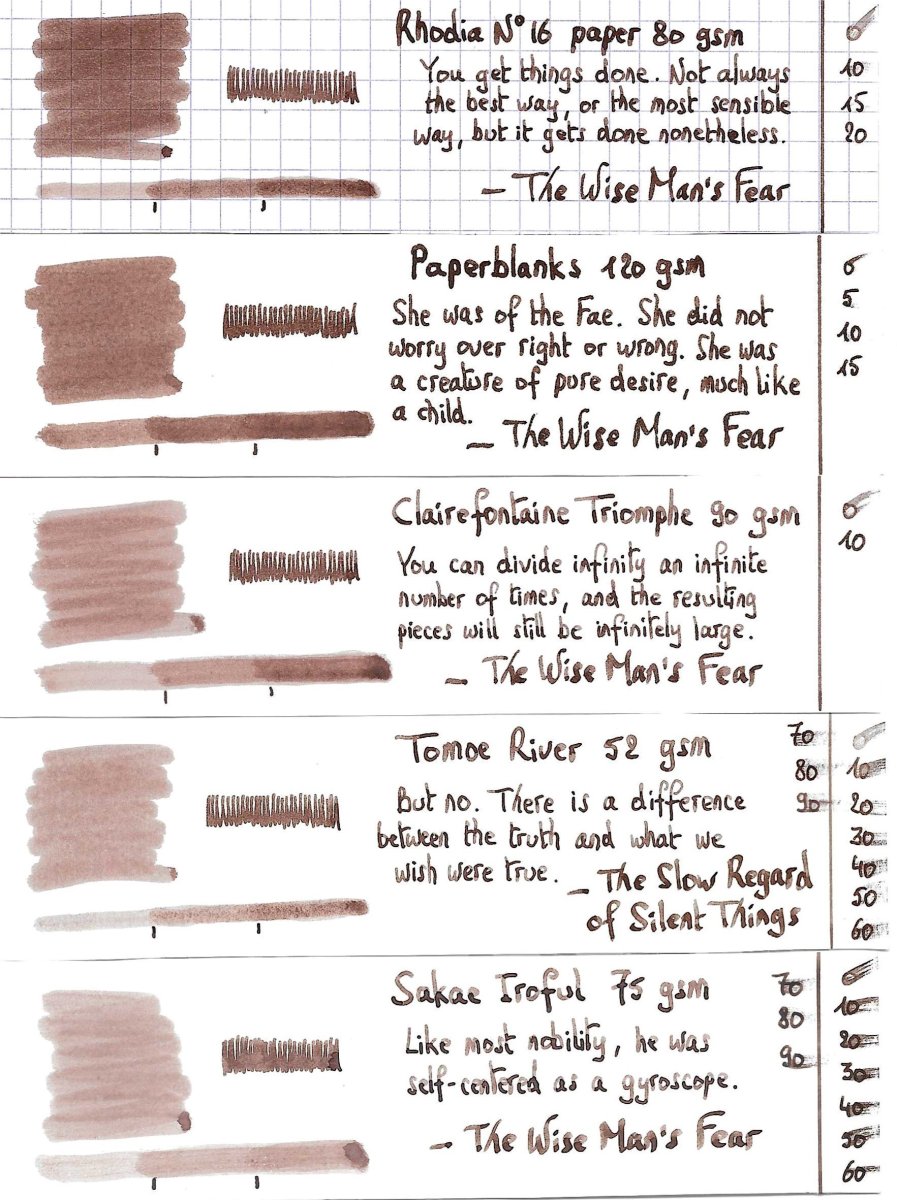 Rhodia N° 16 paper 80 gsm
You get things done. Not always
the best way, or the most sensible
way, but it gets done nonetheless.
– The Wise Man's Fear
0
10
15
20
Paperblanks 120 gsm
She was of the Fae. She did not
worry over right or wrong. She was
a creature of pure desire, much like
a child.
– The Wise Man's Fear
0
5
10
15
Clairefontaine Triomphe 90 gsm
You can divide infinity an infinite
number of times, and the resulting
pieces will still be infinitely large.
– The Wise Man's Fear
0
10
Tomoe River 52 gsm
But no. There is a difference
between the truth and what we
wish were true.
– The Slow Regard
of Silent Things
70
80
90
0
10
20
30
40
50
60
Sakae Iroful 75 gsm
Like most nobility, he was
self-centered as a gyroscope.
– The Wise Man's Fear
70
80
90
0
10
20
30
40
50
60